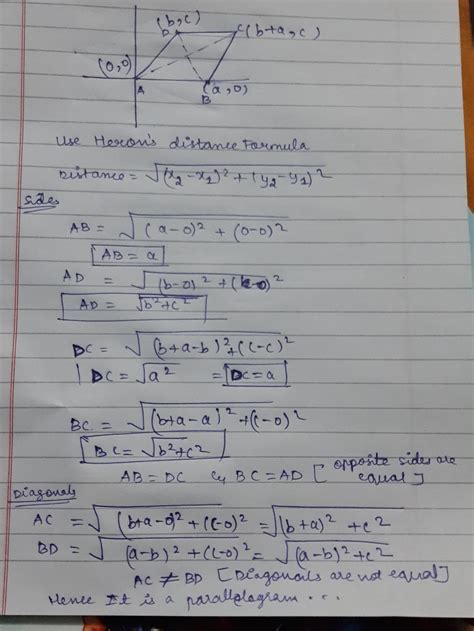 (b,c)
D
C(b+a,c)
(0,0)
A
(a,0)
B
Use Heron's distance Formula
Distance = √(x₂-x₁)² + (y₂-y₁)²
Sides
AB = √(a-0)² + (0-0)²
AB = a
AD = √(b-0)² + (c-0)²
AD = √b²+c²
DC = √(b+a-b)² + (c-c)²
DC = √a² = DC = a
BC = √(b+a-a)² + (c-0)²
BC = √b²+c²
AB = DC & BC = AD [opposite sides are equal]
Diagonals
AC = √(b+a-0)² + (c-0)² = √(b+a)² + c²
BD = √(a-b)² + (c-0)² = √(a-b)² + c²
AC ≠ BD [Diagonals are not equal]
Hence It is a parallelogram ...